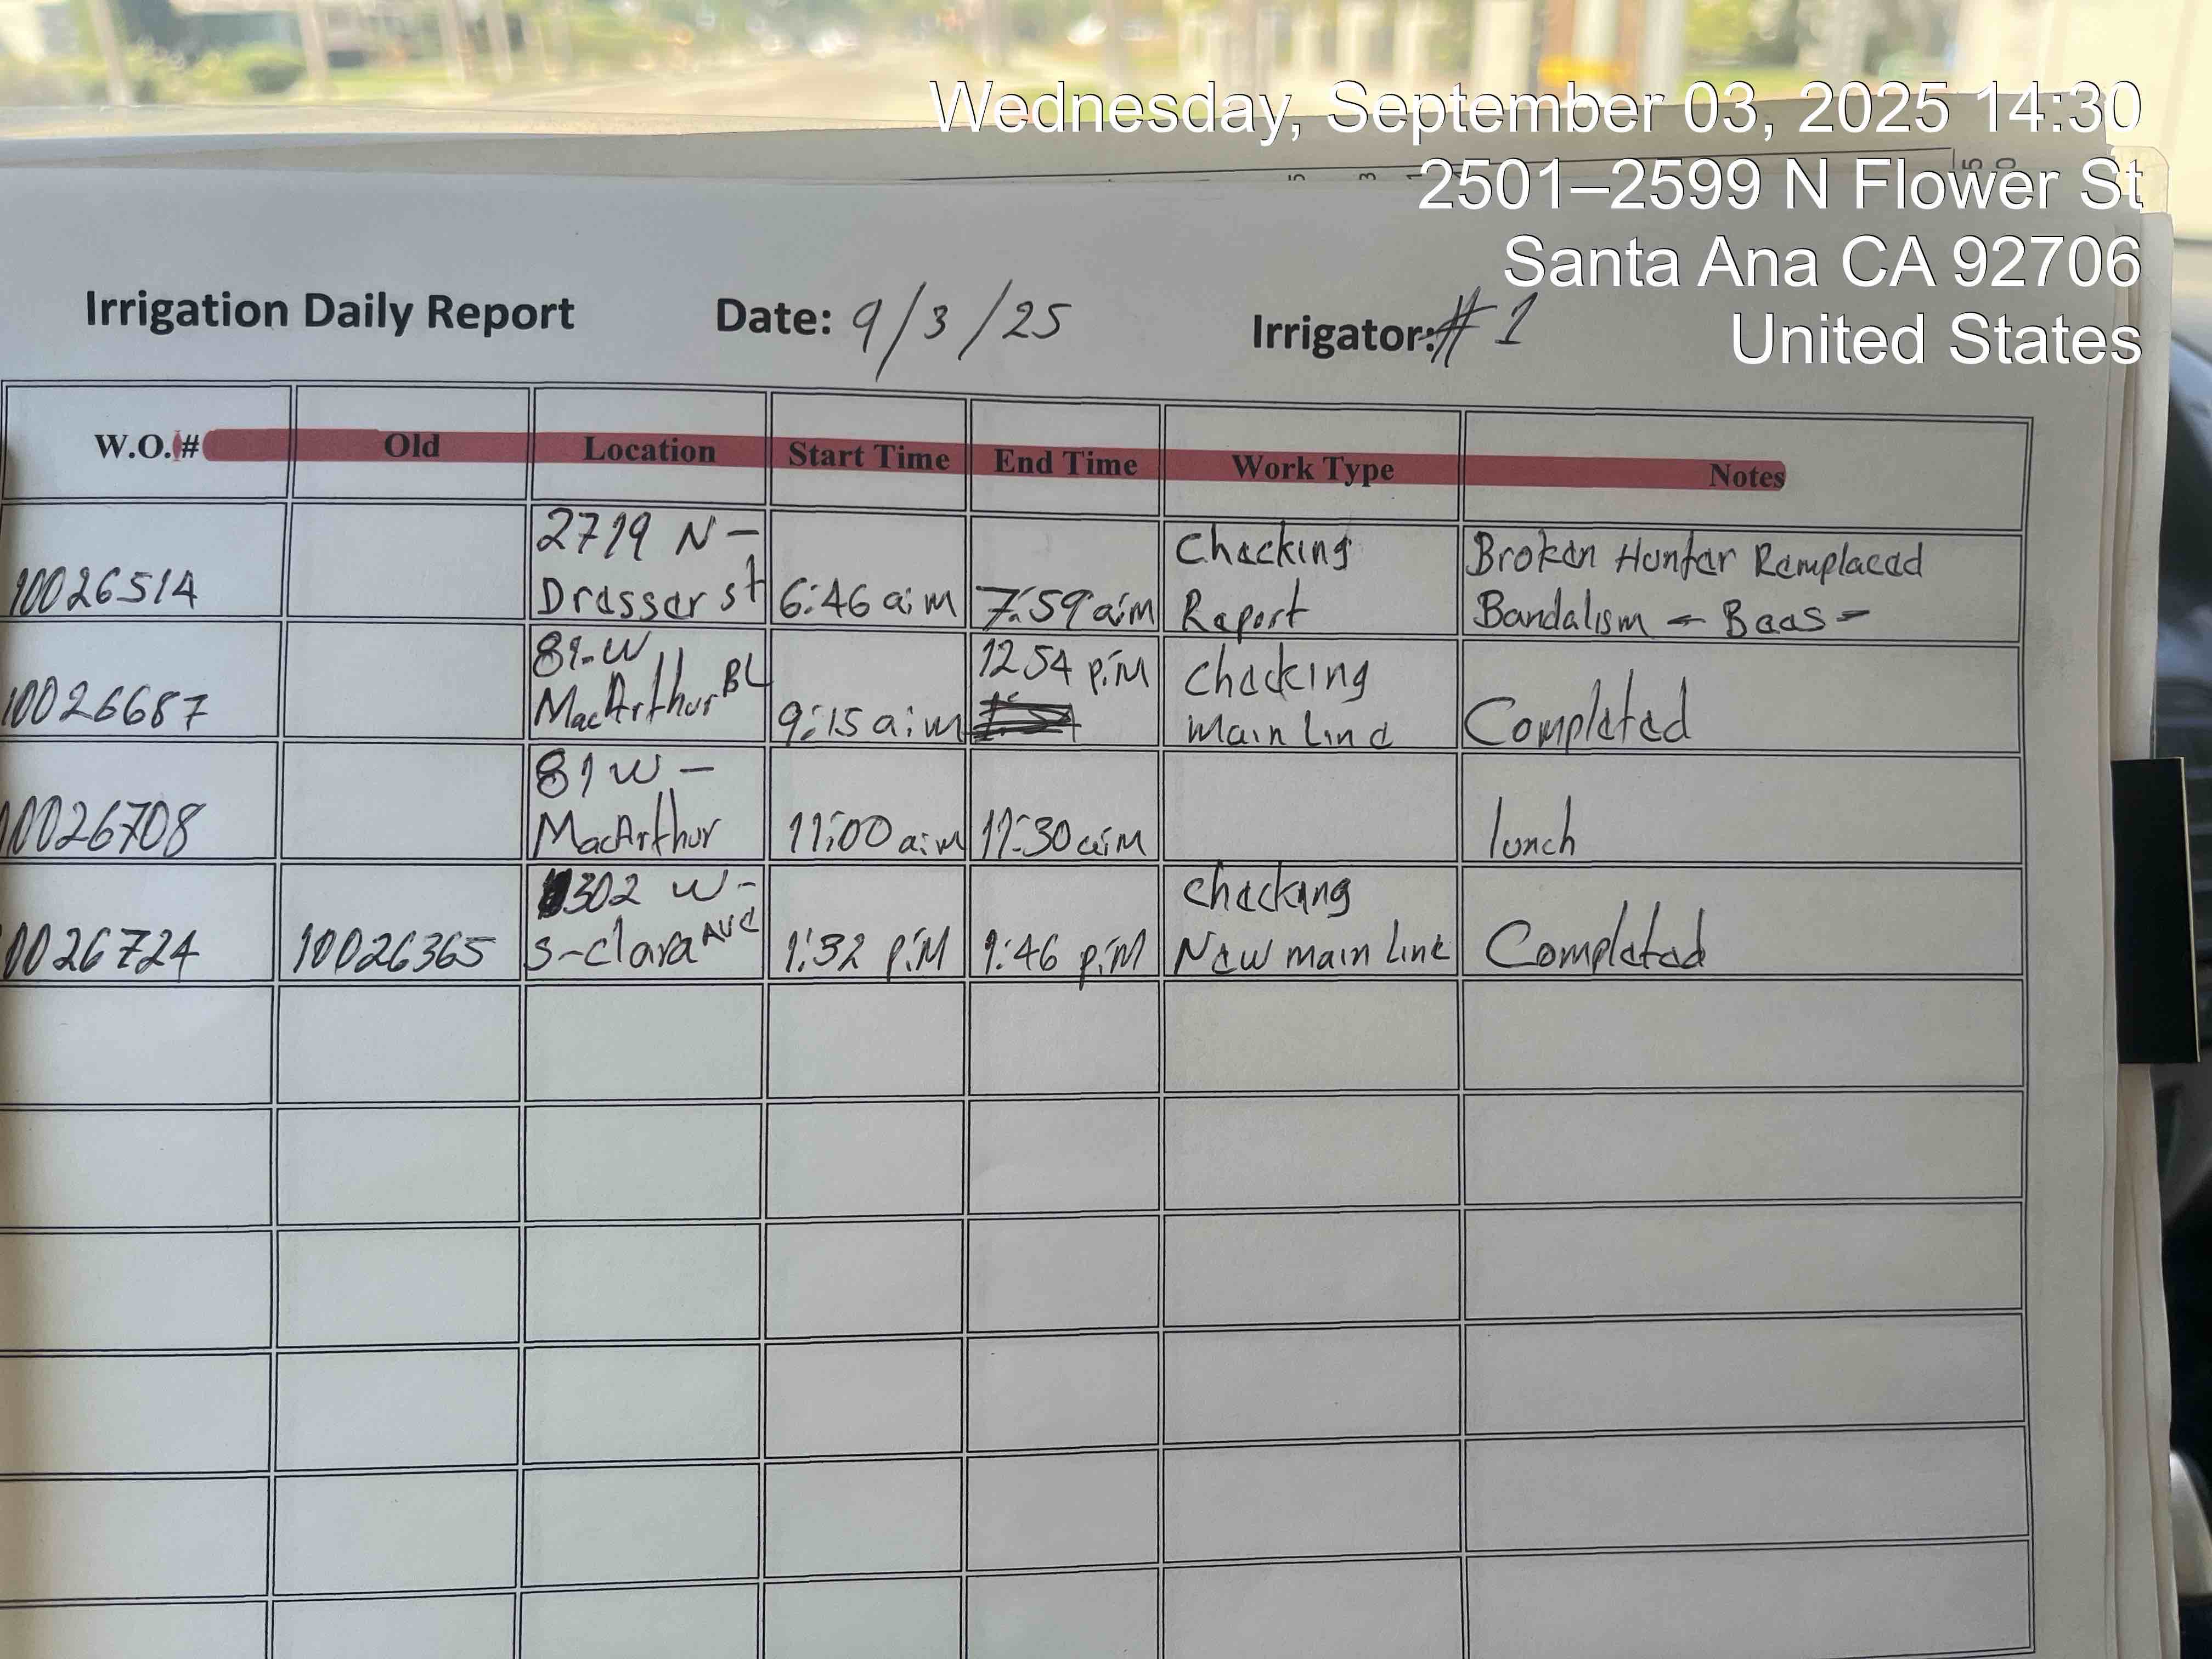 Wednesday, September 03, 2025 14:30
2501–2599 N Flower St
Santa Ana CA 92706
United States
Irrigation Daily Report Date: 9/3/25 Irrigator: #1
W.O.# Old Location Start Time End Time Work Type Notes
2719 N - Checking Broken Hunter Remplaced
10026514 Dresser st 6:46 a:m 7:59 a:m Report Bandalism - Bees -
81-W 1254 p:M checking
10026687 MacArthur BL 9:15 a:m Main Line Completed
81 W -
10026708 MacArthur 11:00 a:m 11:30 a:M lunch
302 W - checking
10026724 10026365 S-clara Ave 1:32 p:M 1:46 p:M New main Line Completed